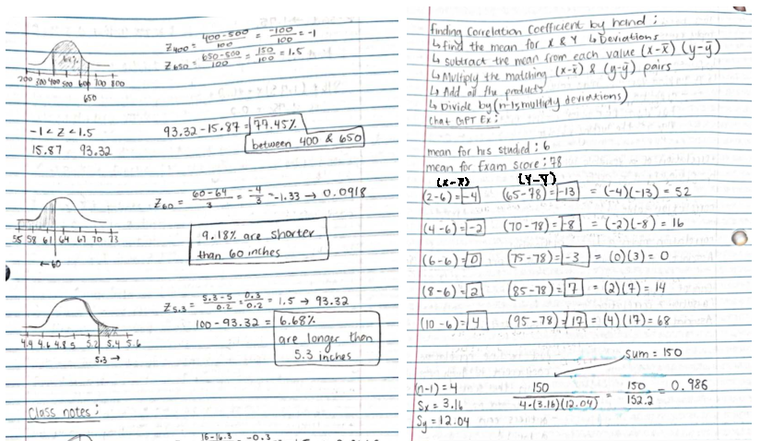 Z400 = 400-500/100 = -100/100 = -1
Z650 = 650-500/100 = 150/100 = 1.5
200 300 400 500 600 700 800
650
-1 < Z < 1.5
93.32 - 15.87 = 77.45%
15.87 93.32
between 400 & 650
Z60 = 60-64/3 = -4/3 = -1.33 → 0.0918
55 58 61 64 67 70 73
←60
9.18% are shorter
than 60 inches
Z5.3 = 5.3-5/0.2 = 0.3/0.2 = 1.5 → 93.32
100 - 93.32 = 6.68%
are longer than
5.3 inches
4.4 4.6 4.8 5 5.2 5.4 5.6
5.3 →
Class notes:
16-16.3 -0.3
finding Correlation Coefficient by hand:
↳ find the mean for X & Y ↳ Deviations
↳ subtract the mean from each value (x-x̄) (y-ȳ)
↳ Multiply the matching (x-x̄) & (y-ȳ) pairs
↳ Add all the products
↳ Divide by (n-1 multiply deviations)
Chat GPT Ex:
mean for hrs studied: 6
mean for Exam score: 78
(x-x̄) (y-ȳ)
(2-6)=-4 (65-78)=-13 = (-4)(-13) = 52
(4-6)=-2 (70-78)=-8 = (-2)(-8) = 16
(6-6)=0 (75-78)=-3 = (0)(3) = 0
(8-6)=2 (85-78)=7 = (2)(7) = 14
(10-6)=4 (95-78)=17 = (4)(17) = 68
Sum = 150
(n-1) = 4
Sx = 3.16
Sy = 12.04
150/4·(3.16)(12.04) = 150/152.2 = 0.986